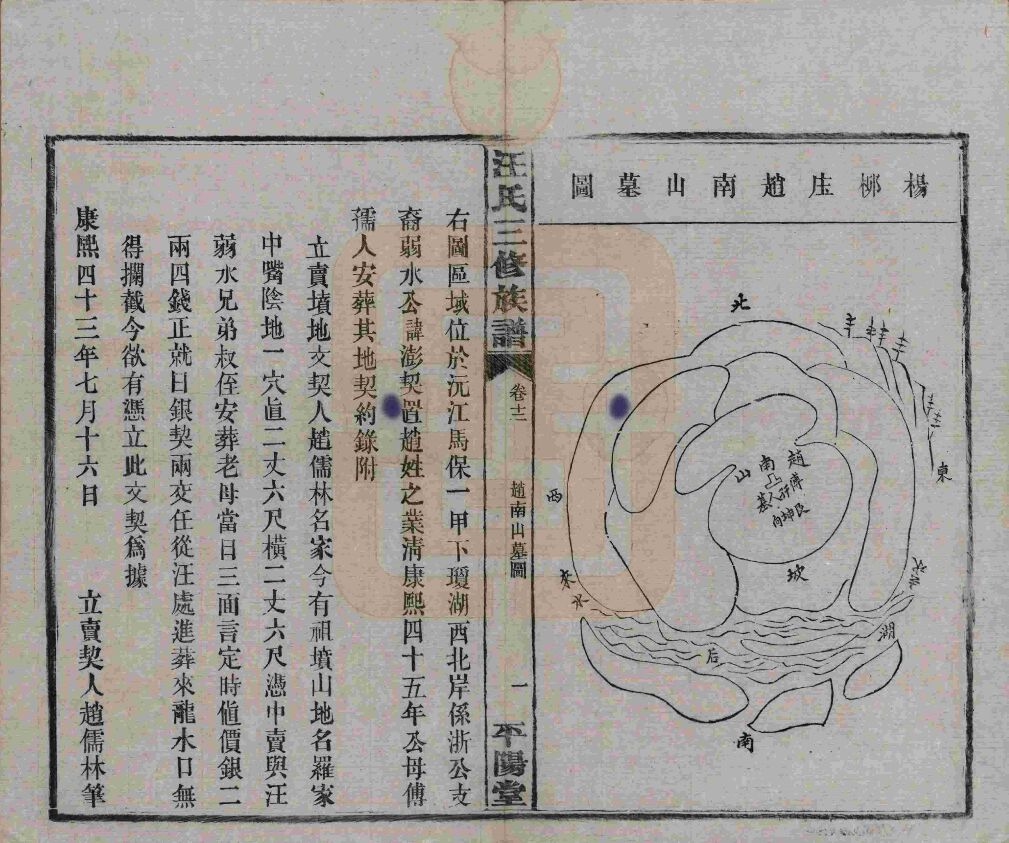 楊柳庄趙南山墓圖
北
東
西
南
趙南山
傅孺人墓
艮坤向
坡
來水
去水
湖
后
汪氏三修族譜
卷十二
趙南山墓圖
一
平陽堂
右圖區域位於沅江馬保一甲下瓊湖西北岸係浙公支
裔弱水公諱澎契置趙姓之業清康熙四十五年公母傅
孺人安葬其地契約錄附
立賣墳地文契人趙儒林名家今有祖墳山地名羅家
中嘴陰地一穴直二丈六尺橫二丈六尺憑中賣與汪
弱水兄弟叔侄安葬老母當日三面言定時值價銀二
兩四錢正就日銀契兩交任從汪處進葬來龍水口無
得攔截今欲有憑立此文契為據
康熙四十三年七月十六日　立賣契人趙儒林筆